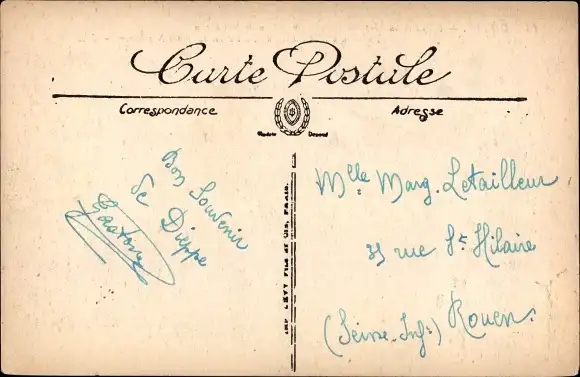 Carte Postale
Correspondance
Adresse
Bon Souvenir
de Dieppe
Gaston
Mlle Marg. Letailleur
35 rue St Hilaire
(Seine-Infre) Rouen.
LEVY Fils et Cie, PARIS.